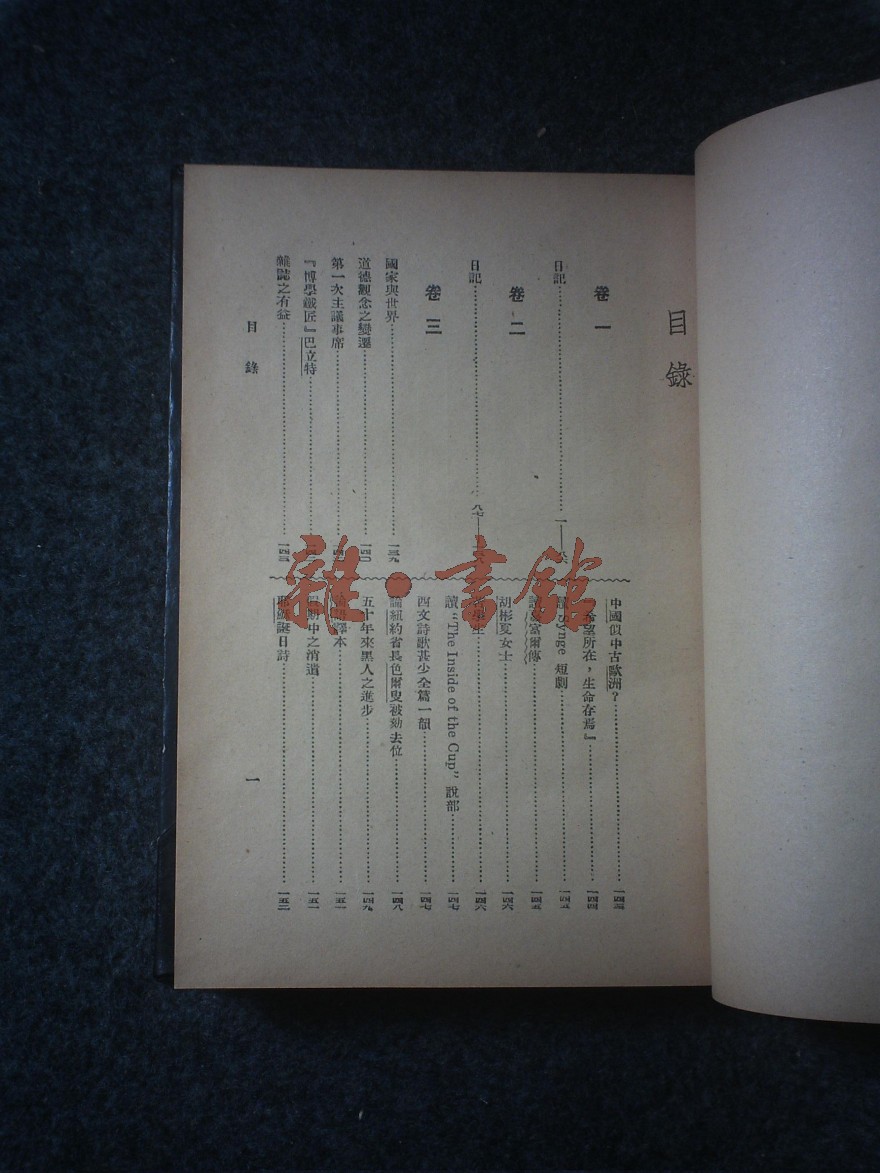 目錄
卷一
日記 一——
卷二
日記 八七——
卷三
國家與世界 一三九
道德觀念之變遷 一四〇
第一次主議事席
『博學鐵匠』巴立特
雜誌之有益 一四三
中國似中古歐洲？ 一四三
希望所在，生命存焉』 一四四
Synge 短劇 一四五
富爾傳 一四五
胡彬夏女士 一四六
生 一四六
讀“The Inside of the Cup”說部 一四七
西文詩歌甚少全篇一韻 一四七
論紐約省長色爾叟被劾去位 一四八
五十年來黑人之進步 一四九
譯本 一五一
假期中之消遣 一五一
耶穌誕日詩 一五二
目錄
一
雜·書館